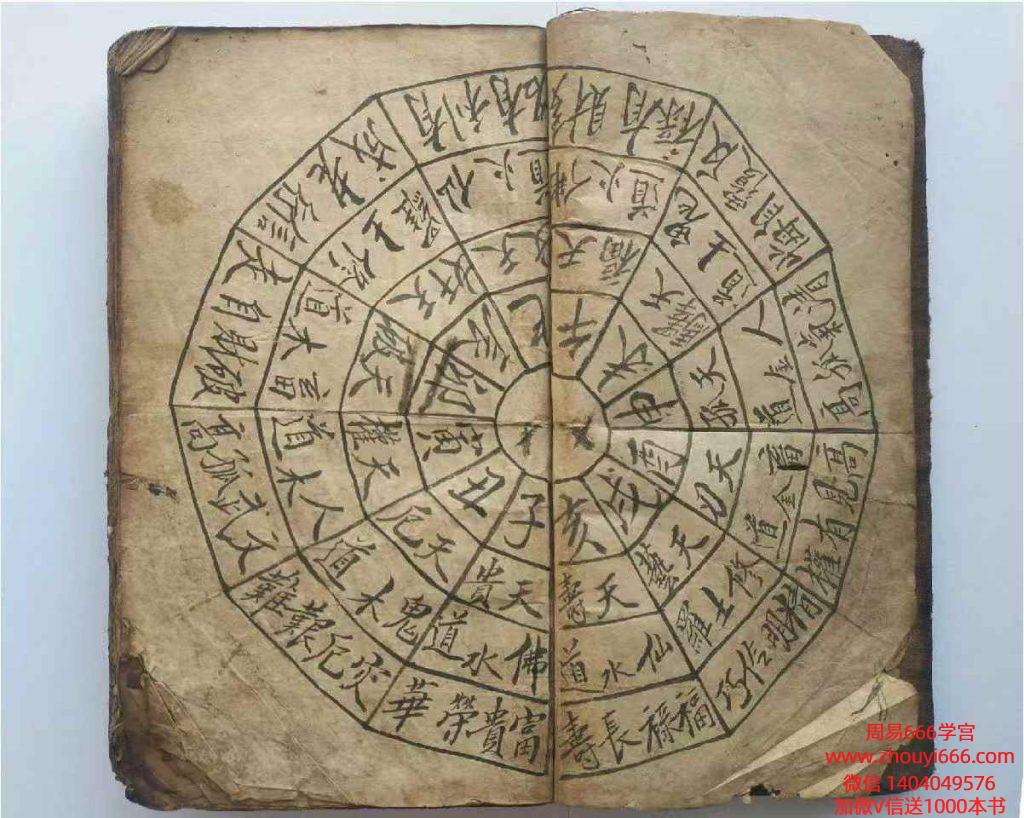 子
天貴
佛水道
富貴榮華
丑
天厄
鬼木道
灾厄艱難
寅
天權
人木道
文武孤高
卯
天破
畜木道
破財自走
辰
天奸
修土羅
巳
天文
仙火道
午
天福
佛火道
未
天驛
鬼土道
申
天孤
人金道
孤高
酉
天刃
畜金道
戌
天藝
修土羅
亥
天壽
仙水道
福祿長壽
周易666学宫
www.zhouyi666.com
微信 1404049576
加微V信送1000本书